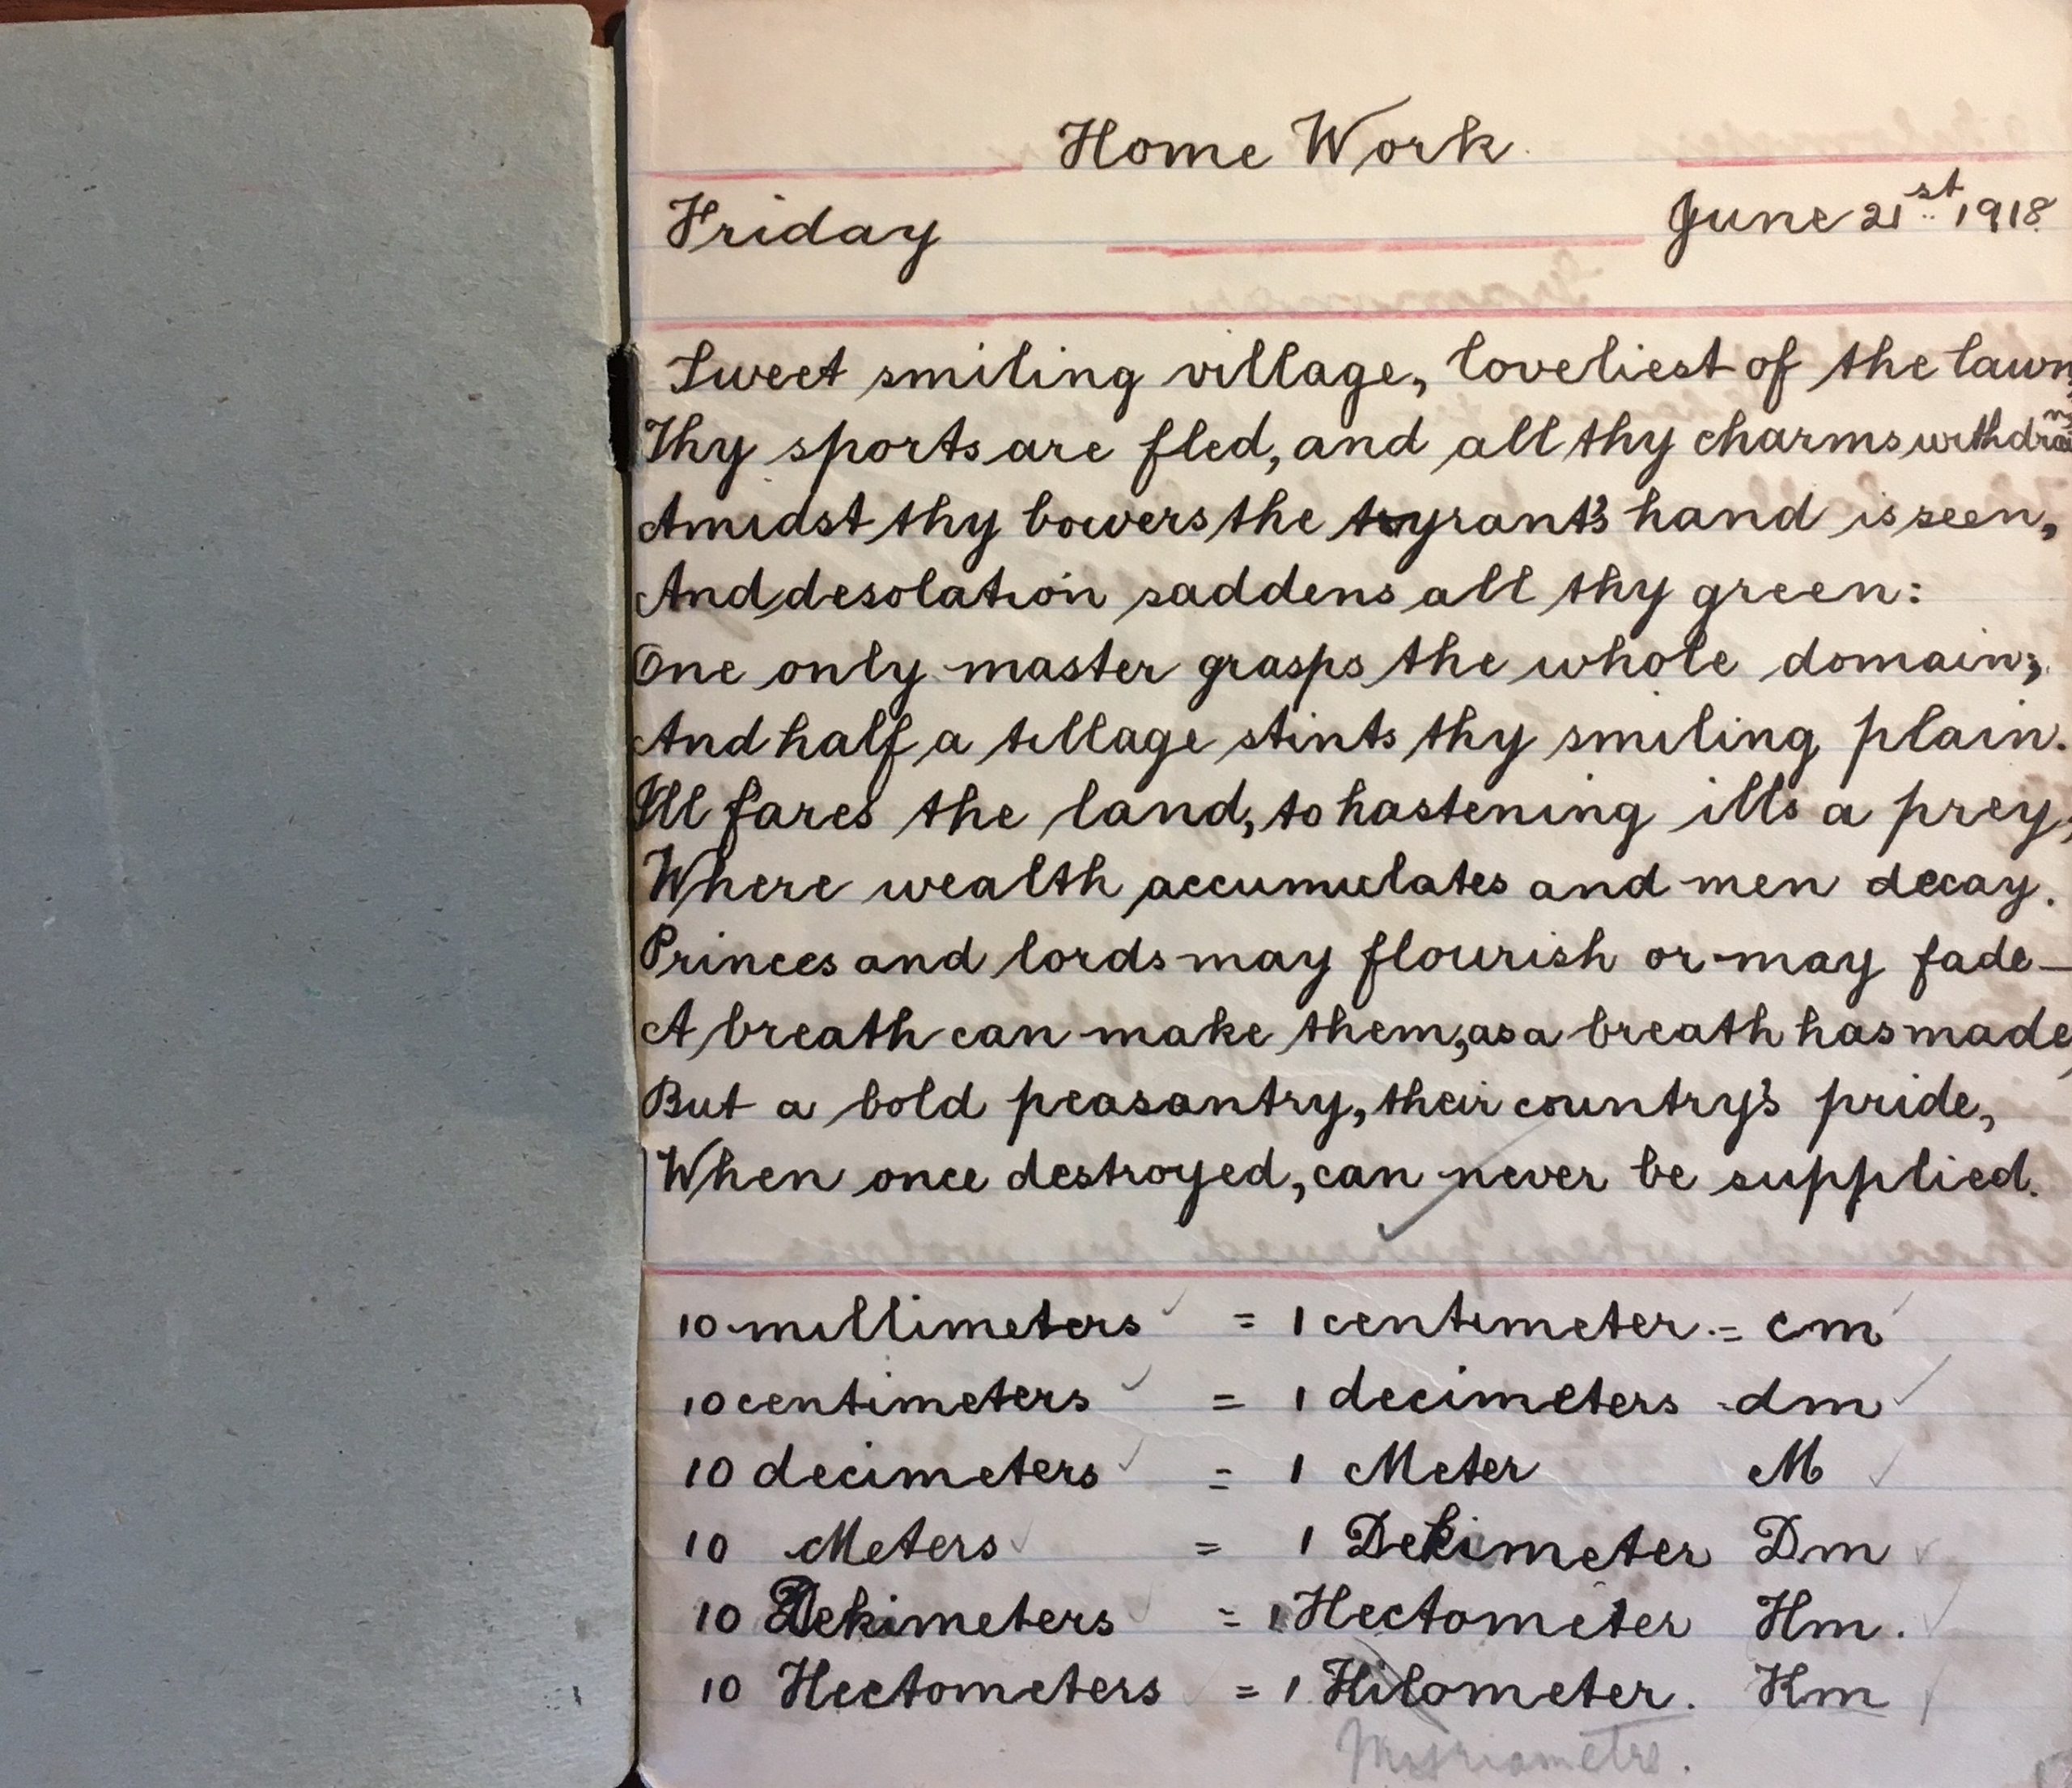 Home Work.
Friday June 21st 1918.
Sweet smiling village, loveliest of the lawn,
Thy sports are fled, and all thy charms withdrawn
Amidst thy bowers the tyrant's hand is seen,
And desolation saddens all thy green:
One only master grasps the whole domain;
And half a tillage stints thy smiling plain.
Ill fares the land, to hastening ills a prey,
Where wealth accumulates and men decay.
Princes and lords may flourish or may fade—
A breath can make them, as a breath has made,
But a bold peasantry, their country's pride,
When once destroyed, can never be supplied.
10 millimeters = 1 centimeter. = cm
10 centimeters = 1 decimeters - dm
10 decimeters = 1 Meter M
10 Meters = 1 Dekimeter Dm
10 Dekimeters = 1 Hectometer Hm.
10 Hectometers = 1 Kilometer. Km
Myriametre.